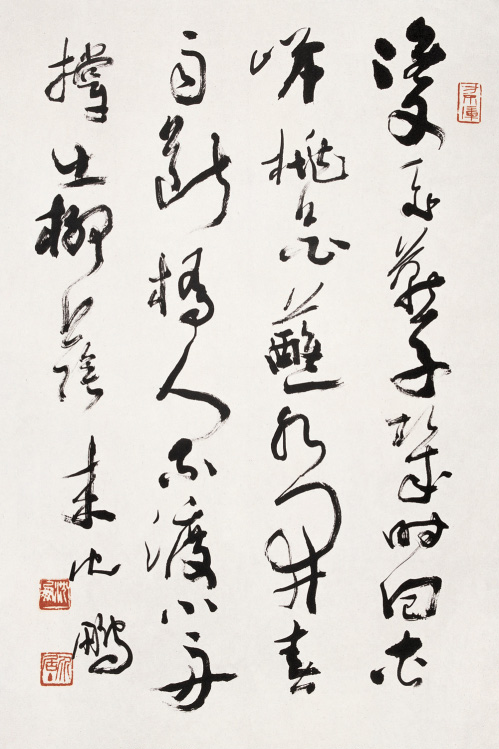 雙飛燕子幾時回夾
岸桃花蘸水開春
雨斷橋人不渡小舟
撑出柳蔭来 沈鵬